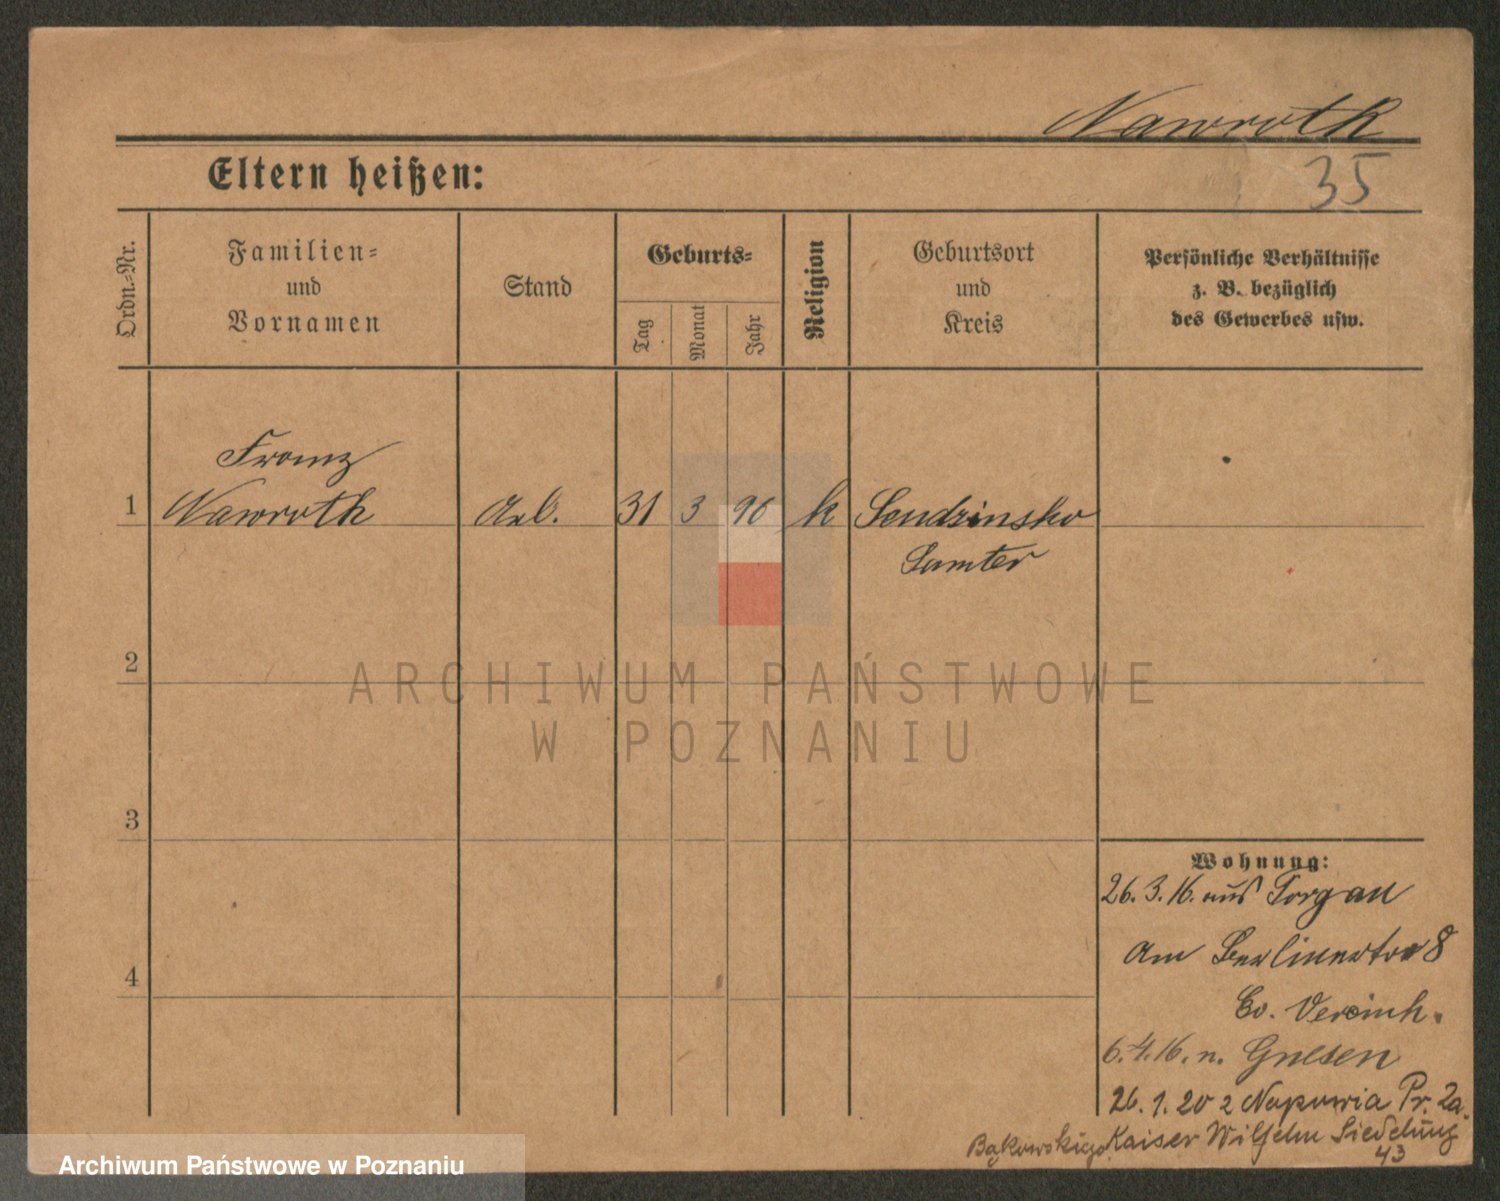 Nawroth
Eltern heißen:
35
Ordn.-Nr.
Familien-
und
Vornamen
Stand
Geburts-
Tag
Monat
Jahr
Religion
Geburtsort
und
Kreis
Persönliche Verhältnisse
z. B. bezüglich
des Gewerbes usw.
Franz
1 Nawroth Arb. 31 3 96 k Sendzinsko
Samter
2
ARCHIWUM PAŃSTWOWE
W POZNANIU
3
Wohnung:
26.3.16. aus Torgau
am Berlinertor 8
Ev. Vereinh.
4
6.4.16. n. Gnesen
26.1.20 z Pr. Za.
Bąkowskiego Kaiser Wilhelm Siedelung
43
Archiwum Państwowe w Poznaniu